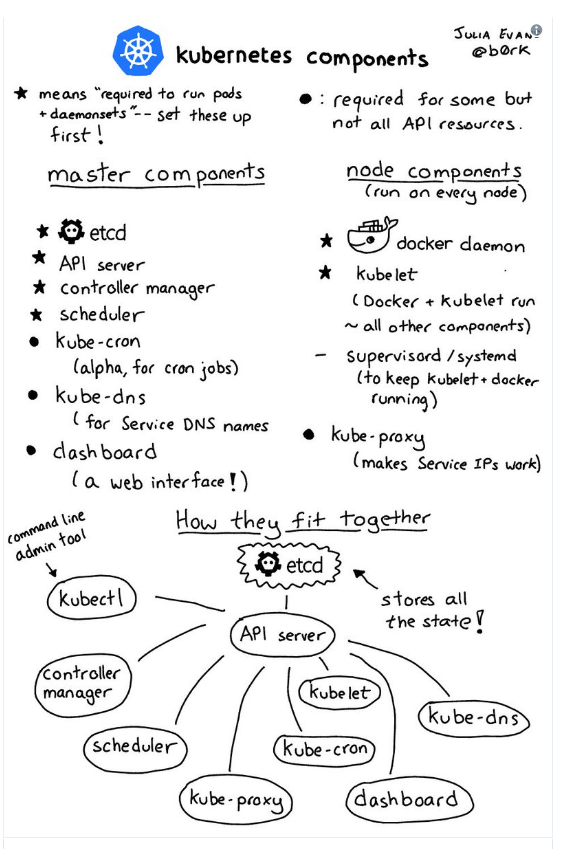 kubernetes components
JULIA EVANS
@b0rk
★ means "required to run pods
+ daemonsets" -- set these up
first!
● : required for some but
not all API resources.
master components
★ etcd
★ API server
★ controller manager
★ scheduler
● kube-cron
(alpha, for cron jobs)
● kube-dns
( for Service DNS names
● dashboard
(a web interface!)
node components
(run on every node)
★ docker daemon
★ kubelet
(Docker + Kubelet run
~ all other components)
- supervisord / systemd
(to keep Kubelet + docker
running)
● kube-proxy
(makes Service IPs work)
How they fit together
command line
admin tool
etcd
stores all
the state!
kubectl
API server
controller
manager
kubelet
kube-dns
scheduler
kube-cron
kube-proxy
dashboard